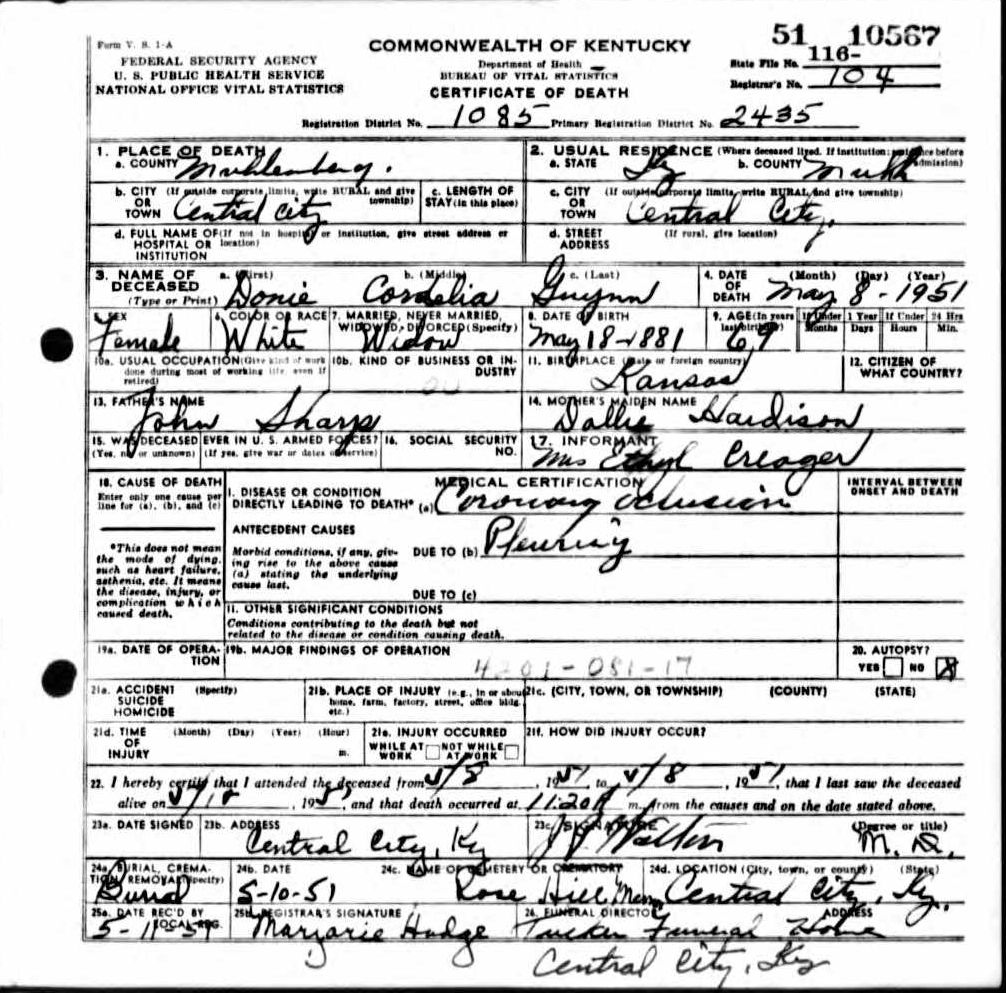 Form V. S. 1-A
51 10567
FEDERAL SECURITY AGENCY
U. S. PUBLIC HEALTH SERVICE
NATIONAL OFFICE VITAL STATISTICS
COMMONWEALTH OF KENTUCKY
Department of Health
BUREAU OF VITAL STATISTICS
CERTIFICATE OF DEATH
State File No. 116-
Registrar's No. 104
Registration District No. 1085 Primary Registration District No. 2435
1. PLACE OF DEATH
a. COUNTY Muhlenberg.
2. USUAL RESIDENCE (Where deceased lived. If institution: residence before admission)
a. STATE Ky b. COUNTY Muhl
b. CITY (If outside corporate limits, write RURAL and give township) OR TOWN Central City
c. LENGTH OF STAY (in this place)
c. CITY (If outside corporate limits, write RURAL and give township) OR TOWN Central City.
d. FULL NAME OF (If not in hospital or institution, give street address or location) HOSPITAL OR INSTITUTION
d. STREET ADDRESS (If rural, give location)
3. NAME OF DECEASED (Type or Print)
a. (First) Donie b. (Middle) Cordelia c. (Last) Gwynn
4. DATE OF DEATH (Month) (Day) (Year) May 8-1951
5. SEX Female
6. COLOR OR RACE White
7. MARRIED, NEVER MARRIED, WIDOWED, DIVORCED (Specify) Widow
8. DATE OF BIRTH May 18-1881
9. AGE (In years last birthday) 69
If Under 1 Year Months Days
If Under 24 Hrs Hours Min.
10a. USUAL OCCUPATION (Give kind of work done during most of working life, even if retired)
10b. KIND OF BUSINESS OR INDUSTRY
11. BIRTHPLACE (State or foreign country) Kansas
12. CITIZEN OF WHAT COUNTRY?
13. FATHER'S NAME John Sharp
14. MOTHER'S MAIDEN NAME Dollie Hardison
15. WAS DECEASED EVER IN U. S. ARMED FORCES? (Yes, no or unknown) (If yes, give war or dates of service)
16. SOCIAL SECURITY NO.
17. INFORMANT Mrs Ethyl Creager
18. CAUSE OF DEATH
Enter only one cause per line for (a), (b), and (c)
*This does not mean the mode of dying, such as heart failure, asthenia, etc. It means the disease, injury, or complication which caused death.
MEDICAL CERTIFICATION
INTERVAL BETWEEN ONSET AND DEATH
I. DISEASE OR CONDITION DIRECTLY LEADING TO DEATH* (a) Coronary Oclusion
ANTECEDENT CAUSES
Morbid conditions, if any, giving rise to the above cause (a) stating the underlying cause last.
DUE TO (b) Pleurisy
DUE TO (c)
II. OTHER SIGNIFICANT CONDITIONS
Conditions contributing to the death but not related to the disease or condition causing death.
19a. DATE OF OPERATION
19b. MAJOR FINDINGS OF OPERATION
4201-081-17
20. AUTOPSY? YES NO X
21a. ACCIDENT SUICIDE HOMICIDE (Specify)
21b. PLACE OF INJURY (e.g., in or about home, farm, factory, street, office bldg. etc.)
21c. (CITY, TOWN, OR TOWNSHIP) (COUNTY) (STATE)
21d. TIME OF INJURY (Month) (Day) (Year) (Hour) m.
21e. INJURY OCCURRED WHILE AT WORK NOT WHILE AT WORK
21f. HOW DID INJURY OCCUR?
22. I hereby certify that I attended the deceased from 5/8, 1951 to 5/8, 1951, that I last saw the deceased
alive on , 1951 and that death occurred at 11:20 m., from the causes and on the date stated above.
23a. DATE SIGNED
23b. ADDRESS Central City, Ky
23c. SIGNATURE Walton (Degree or title) M. D.
24a. BURIAL, CREMATION, REMOVAL (Specify) Burial
24b. DATE 5-10-51
24c. NAME OF CEMETERY OR CREMATORY Rose Hill Mem.
24d. LOCATION (City, town, or county) (State) Central City, Ky.
25a. DATE REC'D BY LOCAL REG. 5-11-51
25b. REGISTRAR'S SIGNATURE Marjorie Hodge
26. FUNERAL DIRECTOR ADDRESS Tucker Funeral Home
Central City, Ky